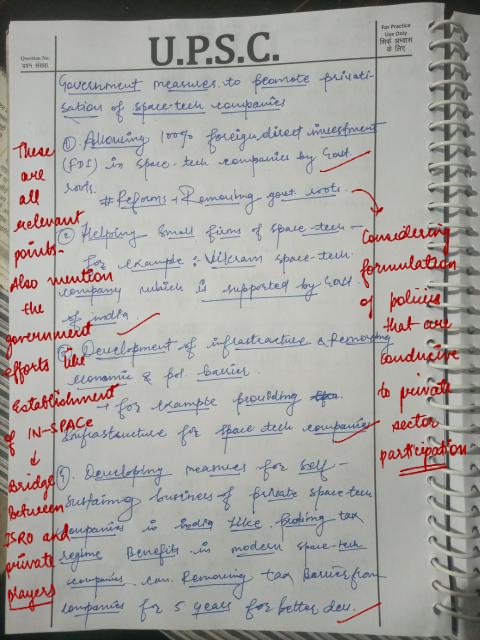 Question No.
प्रश्न संख्या
U.P.S.C.
For Practice
Use Only
सिर्फ अभ्यास
के लिए
Government measures to promote privati-
sation of space-tech companies
① Allowing 100% foreign direct investment
(FDI) in space-tech companies by Govt
roots.
# Reforms → Removing govt. roots.
② Helping small firms of space-tech-
for example :- Vikram space-tech
company which is supported by Govt
of india
Development of infrastracture & Removing
economic & pol. barrier.
→ for example providing
infrastructure for space tech companies
4. Developing measures for self-
sustaing business of private space-tech
companies in india like probing tax
regime Benefits in modern space-tech
companies. can Removing tax barrier from
companies for 5 years for better dev.
These
are
all
relevant
points.
Also mention
the
government
efforts like
Establishment
of IN-SPACe
↓
Bridge
Between
ISRO and
private
players
Considering
formulation
of policies
that are
conducive
to private
sector
participation